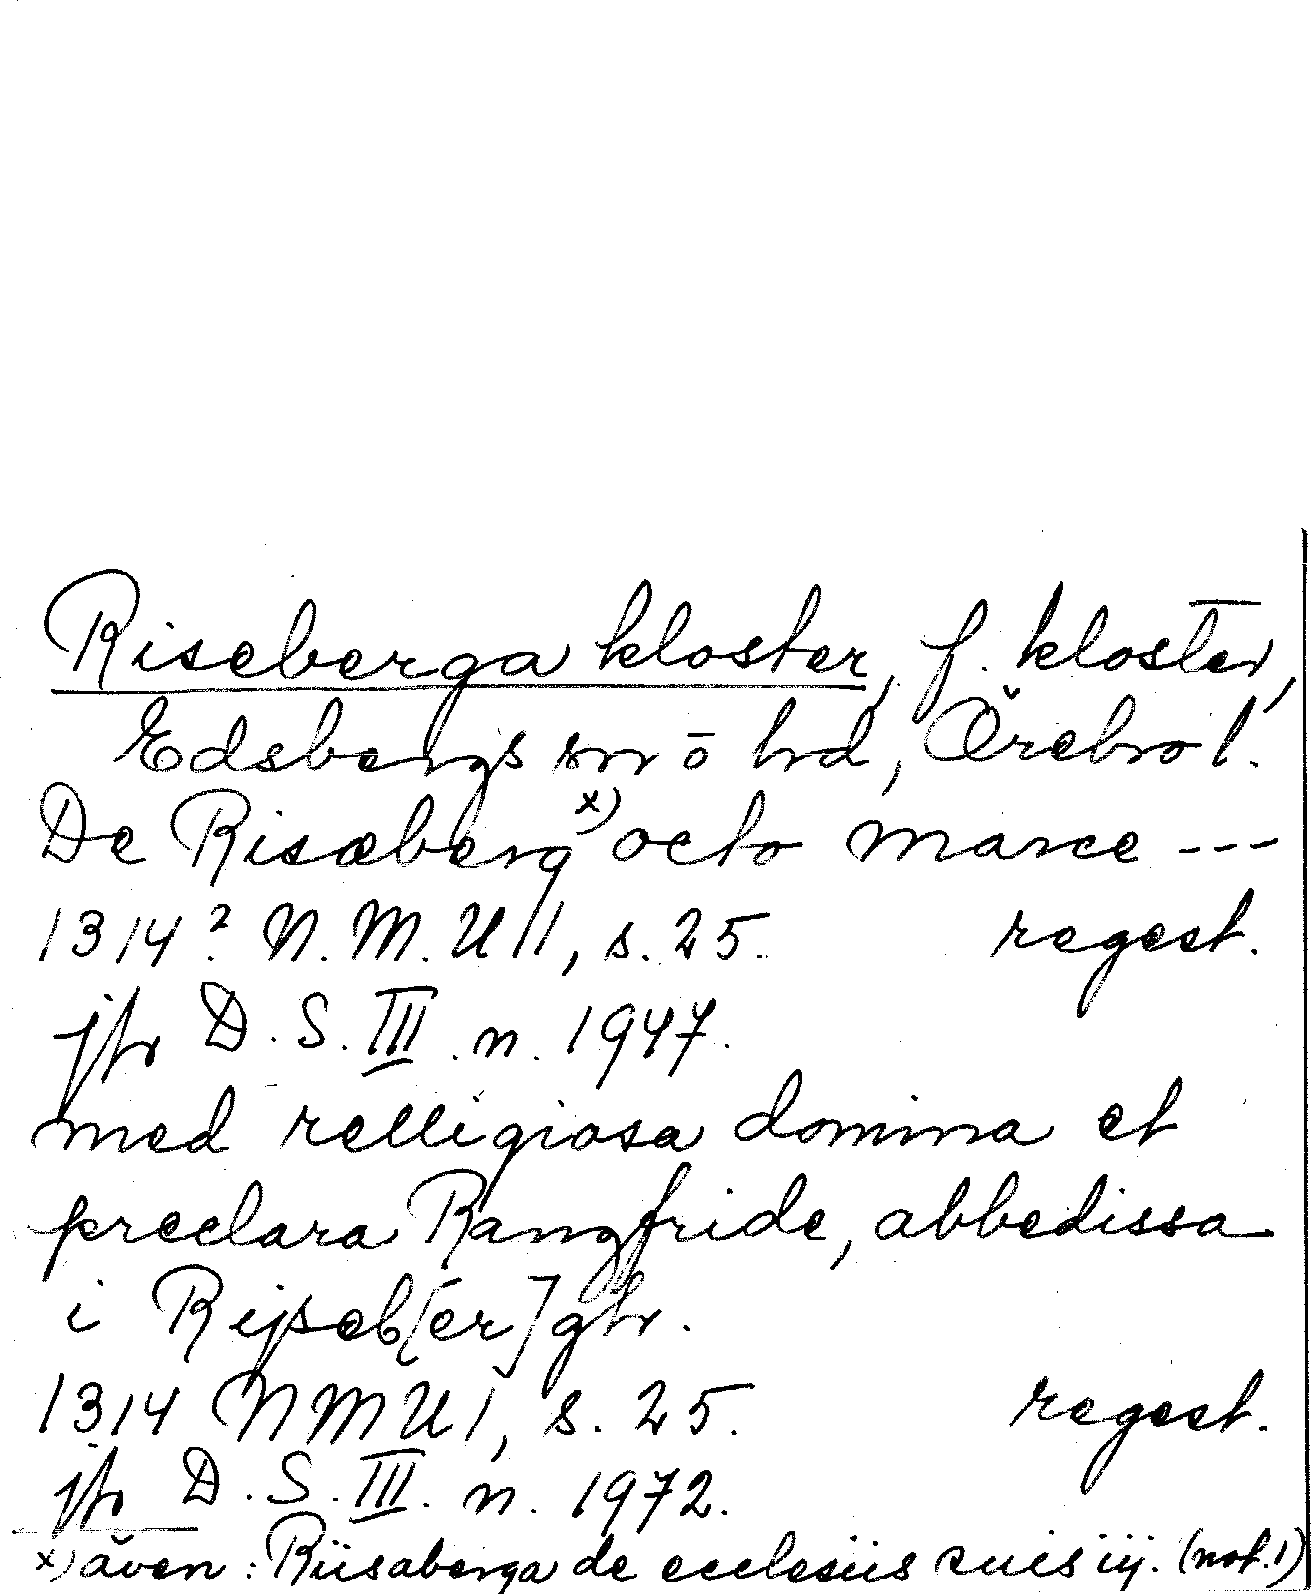 Riseberga kloster, f. kloster,
Edsbergs sn o hd, Örebro l.
De Risæberg x) octo marce ---
1314? N.M.U 1, s. 25. regest.
jfr D.S. III. n. 1947.
med relligiosa domina et
preclara Rangfride, abbedissa
i Rijseb[er]gh.
1314 NMU 1, s. 25. regest.
jfr D.S. III. n. 1972.
x) även: Riisaberga de ecclesiis suis iij. (not. 1)